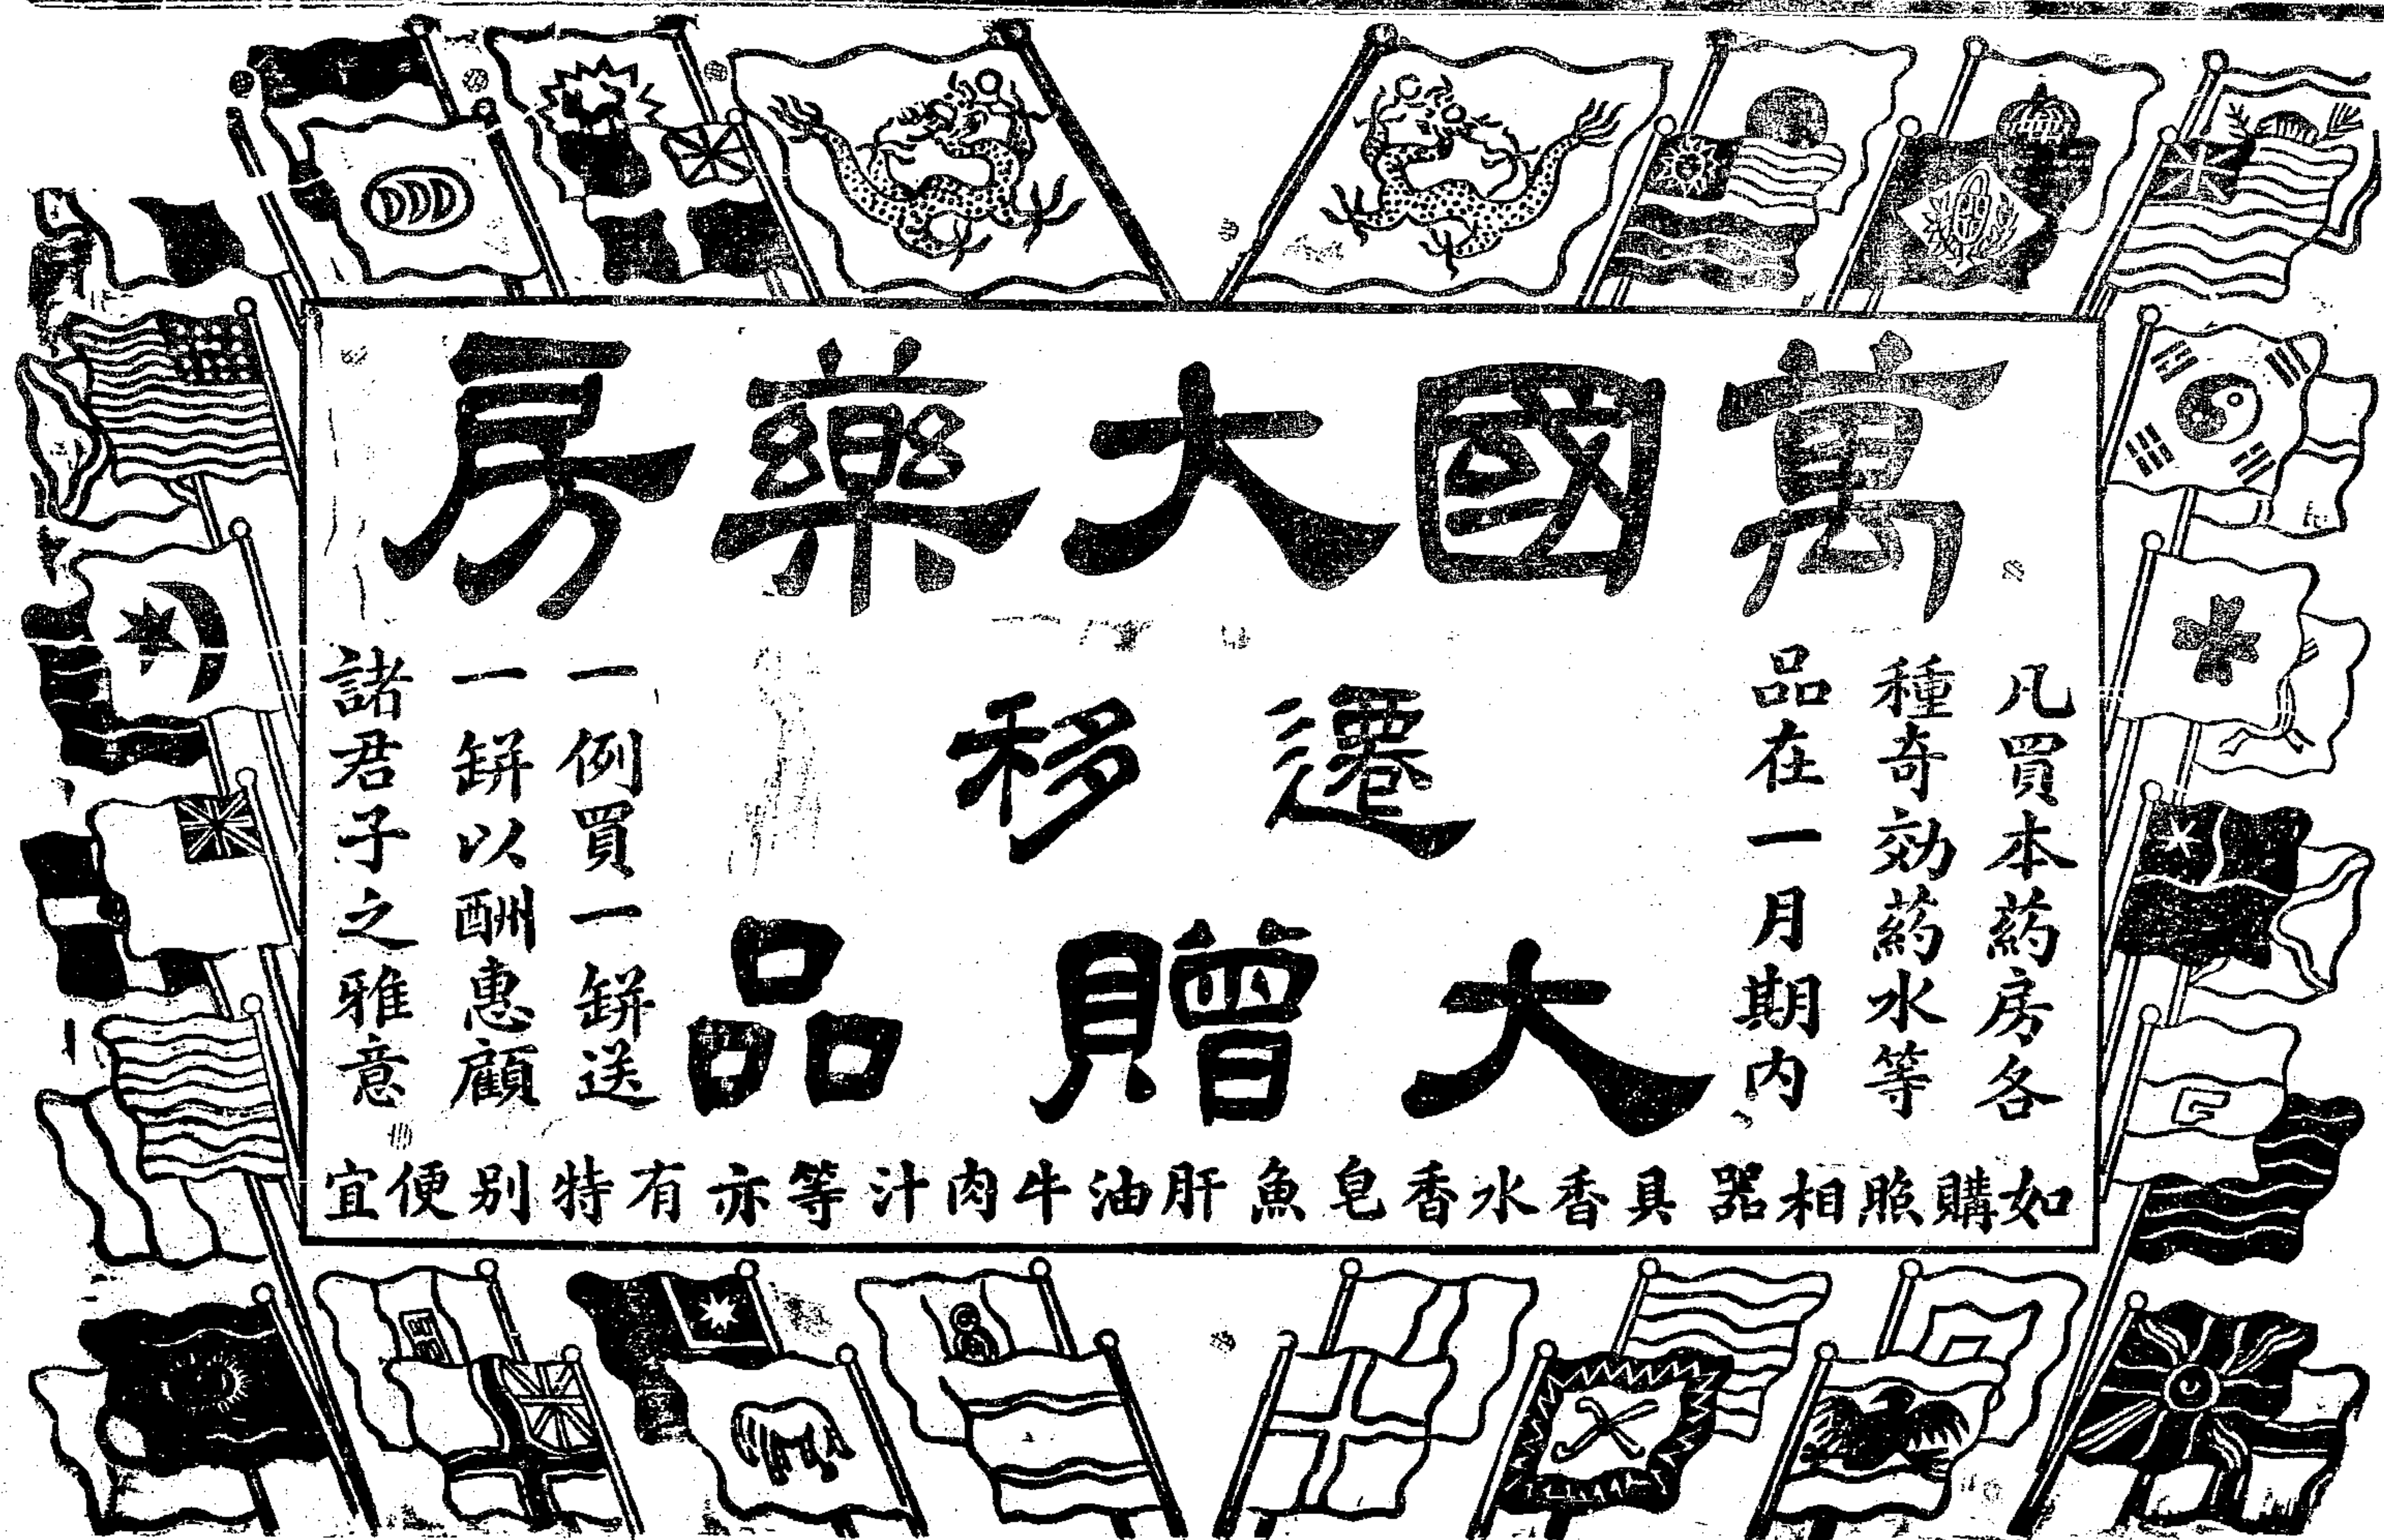 萬國大藥房
遷移
大贈品
凡買本葯房各
種奇効葯水等
品在一月期内
一例買一缾送
一缾以酬惠顧
諸君子之雅意
如購照相器具香水香皂魚肝油牛肉汁等亦有特别便宜